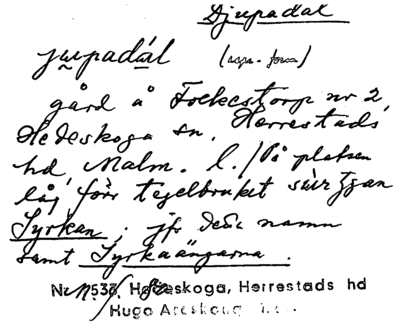 Djupadal
jupadál (upp-form)
gård å Fockestorp nr 2,
Hedeskoga sn, Herrestads
hd, Malm. l. / På platsen
låg förr tegelbruket
Syrkan; jfr detta namn
samt Syrkaängarna.
Hedeskoga, Herrestads hd
Hugo Areskoug